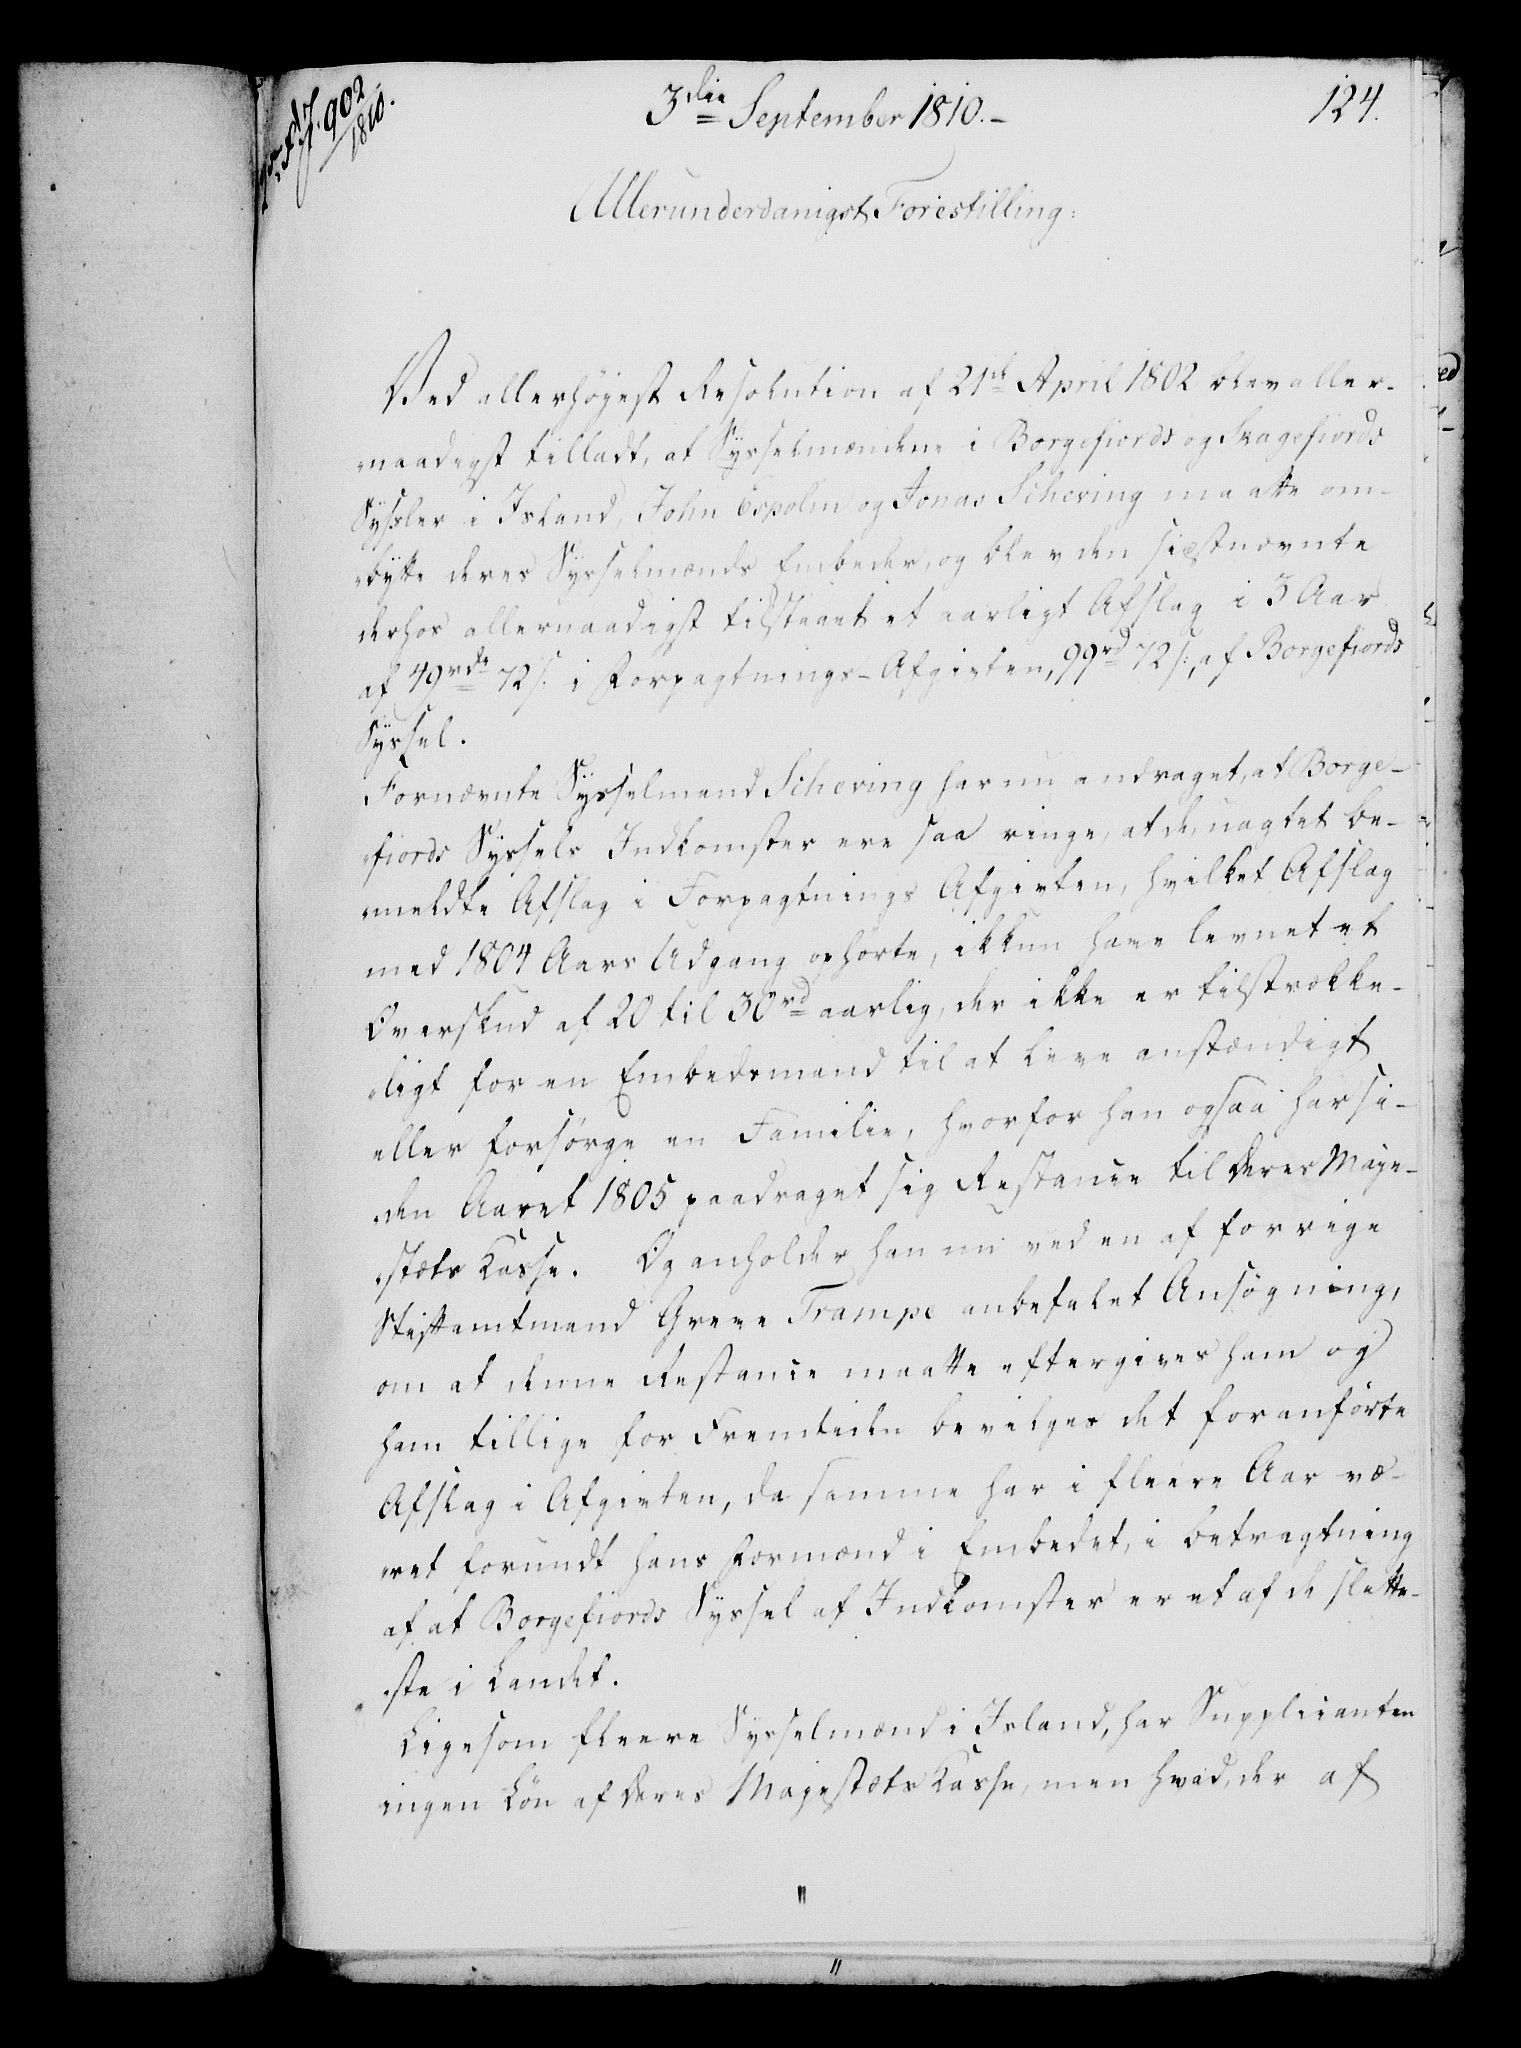 902
1810.
3die September 1810.-
124.
Allerunderdanigst Forestilling:
Ved allerhöyest Resolution af 21de April 1802 blev aller-
naadigst tilladt, at Sysselmændene i Borgefiords og Skagefiords
Sysler i Island, John Espolin og Jonas Schering maatte om-
bytte deres Sysselmands Embeder, og blev den sidstnævnte
derhos allernaadigst tilstaaet et aarligt Afslag i 3 Aar
af 49rdr 72 s. i Forpagtnings-Afgivten, 99rd 72 s:, af Borgefiords
Syssel.
Fornævnte Sysselmand Schering har nu andraget, at Borge-
fiords Syssels Indkomster ere saa ringe, at de, uagtet be-
meldte Afslag i Forpagtnings Afgivten, hvilket Afslag
med 1804 Aars Udgang ophörte, ikkun have levnet et
Overskud af 20 til 30rd aarlig, der ikke er tilstrække-
ligt for en Embedsmand til at leve anstændigt
eller forsörge en Familie, hvorfor han ogsaa har si-
den Aaret 1805 paadraget sig Restance til Deres Maje-
stæts Kasse. Og anholder han nu ved en af forrige
Stiftamtmand Greve Trampe anbefalet Ansögning,
om at denne Restance maatte eftergives ham og
ham tillige for Fremtiden bevilges det foranförte
Afslag i Afgivten, da samme har i fleere Aar væ-
ret forundt hans Formænd i Embedet, i betragtning
af at Borgefiords Syssel af Indkomster er et af de slette-
ste i Landet.
Ligesom fleere Sysselmænd i Island, har Supplicanten
ingen Lön af Deres Majestæts Kasse, men hvad, der af